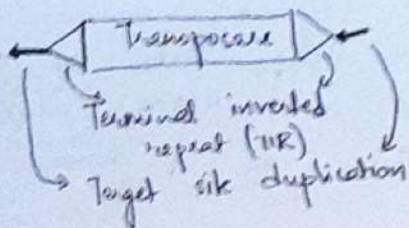 Transposase
Terminal inverted
repeat (TIR)
Target site duplication